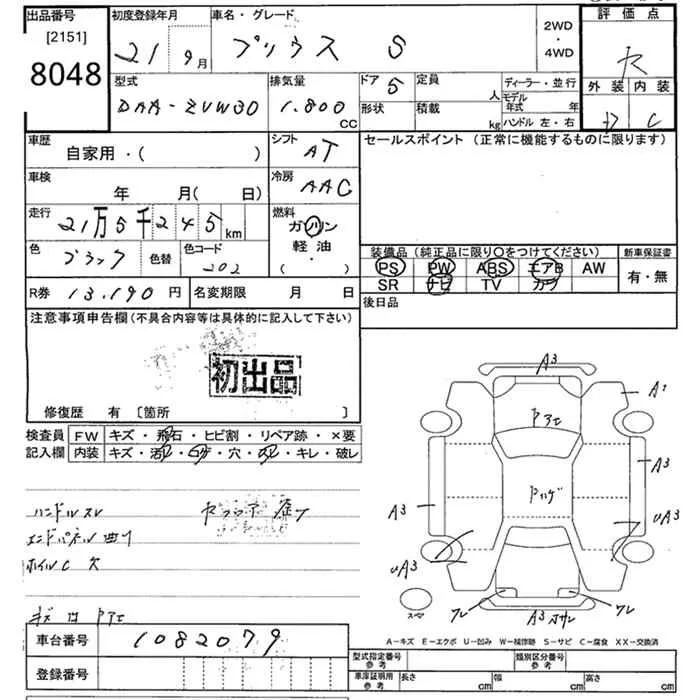 出品番号
[2151]
8048
初度登録年月
21 9月
車名・グレード
プリウス S
2WD
・
4WD
評価点
外装 内装
C
型式
DAA-ZVW30
排気量
1.800
CC
ドア 5
形状
定員
人
積載
kg
ディーラー・並行
モデル年式 年
ハンドル 左・右
車歴
自家用・( )
シフト
AT
セールスポイント (正常に機能するものに限ります)
車検
年 月( 日)
冷房
AAC
走行
21万5千245km
燃料
ガソリン
軽油
( ・ )
色
ブラック
色替
色コード
202
装備品 (純正品に限り〇をつけてください)
PS PW ABS エアB AW
SR ナビ TV カワ
新車保証書
有・無
R券 13.190 円
名変期限 月 日
後日品
注意事項申告欄 (不具合内容等は具体的に記入して下さい)
初出品
修復歴 有 [箇所 ]
検査員
記入欄
FW キズ・飛石・ヒビ割・リペア跡・×要
内装 キズ・・穴・・キレ・破レ
ハンドルスレ
エンドパネル曲リ
ホイルC 欠
A3
A1
A3
A3
UA3
UA3
A3
スペア
A-キズ E-エクボ U-凹み W-補修跡 S-サビ C-腐食 XX-交換済
車台番号
1082079
登録番号
型式指定番号
参考
類別区分番号
参考
車庫証明用
参考
長さ cm
幅 cm
高さ cm